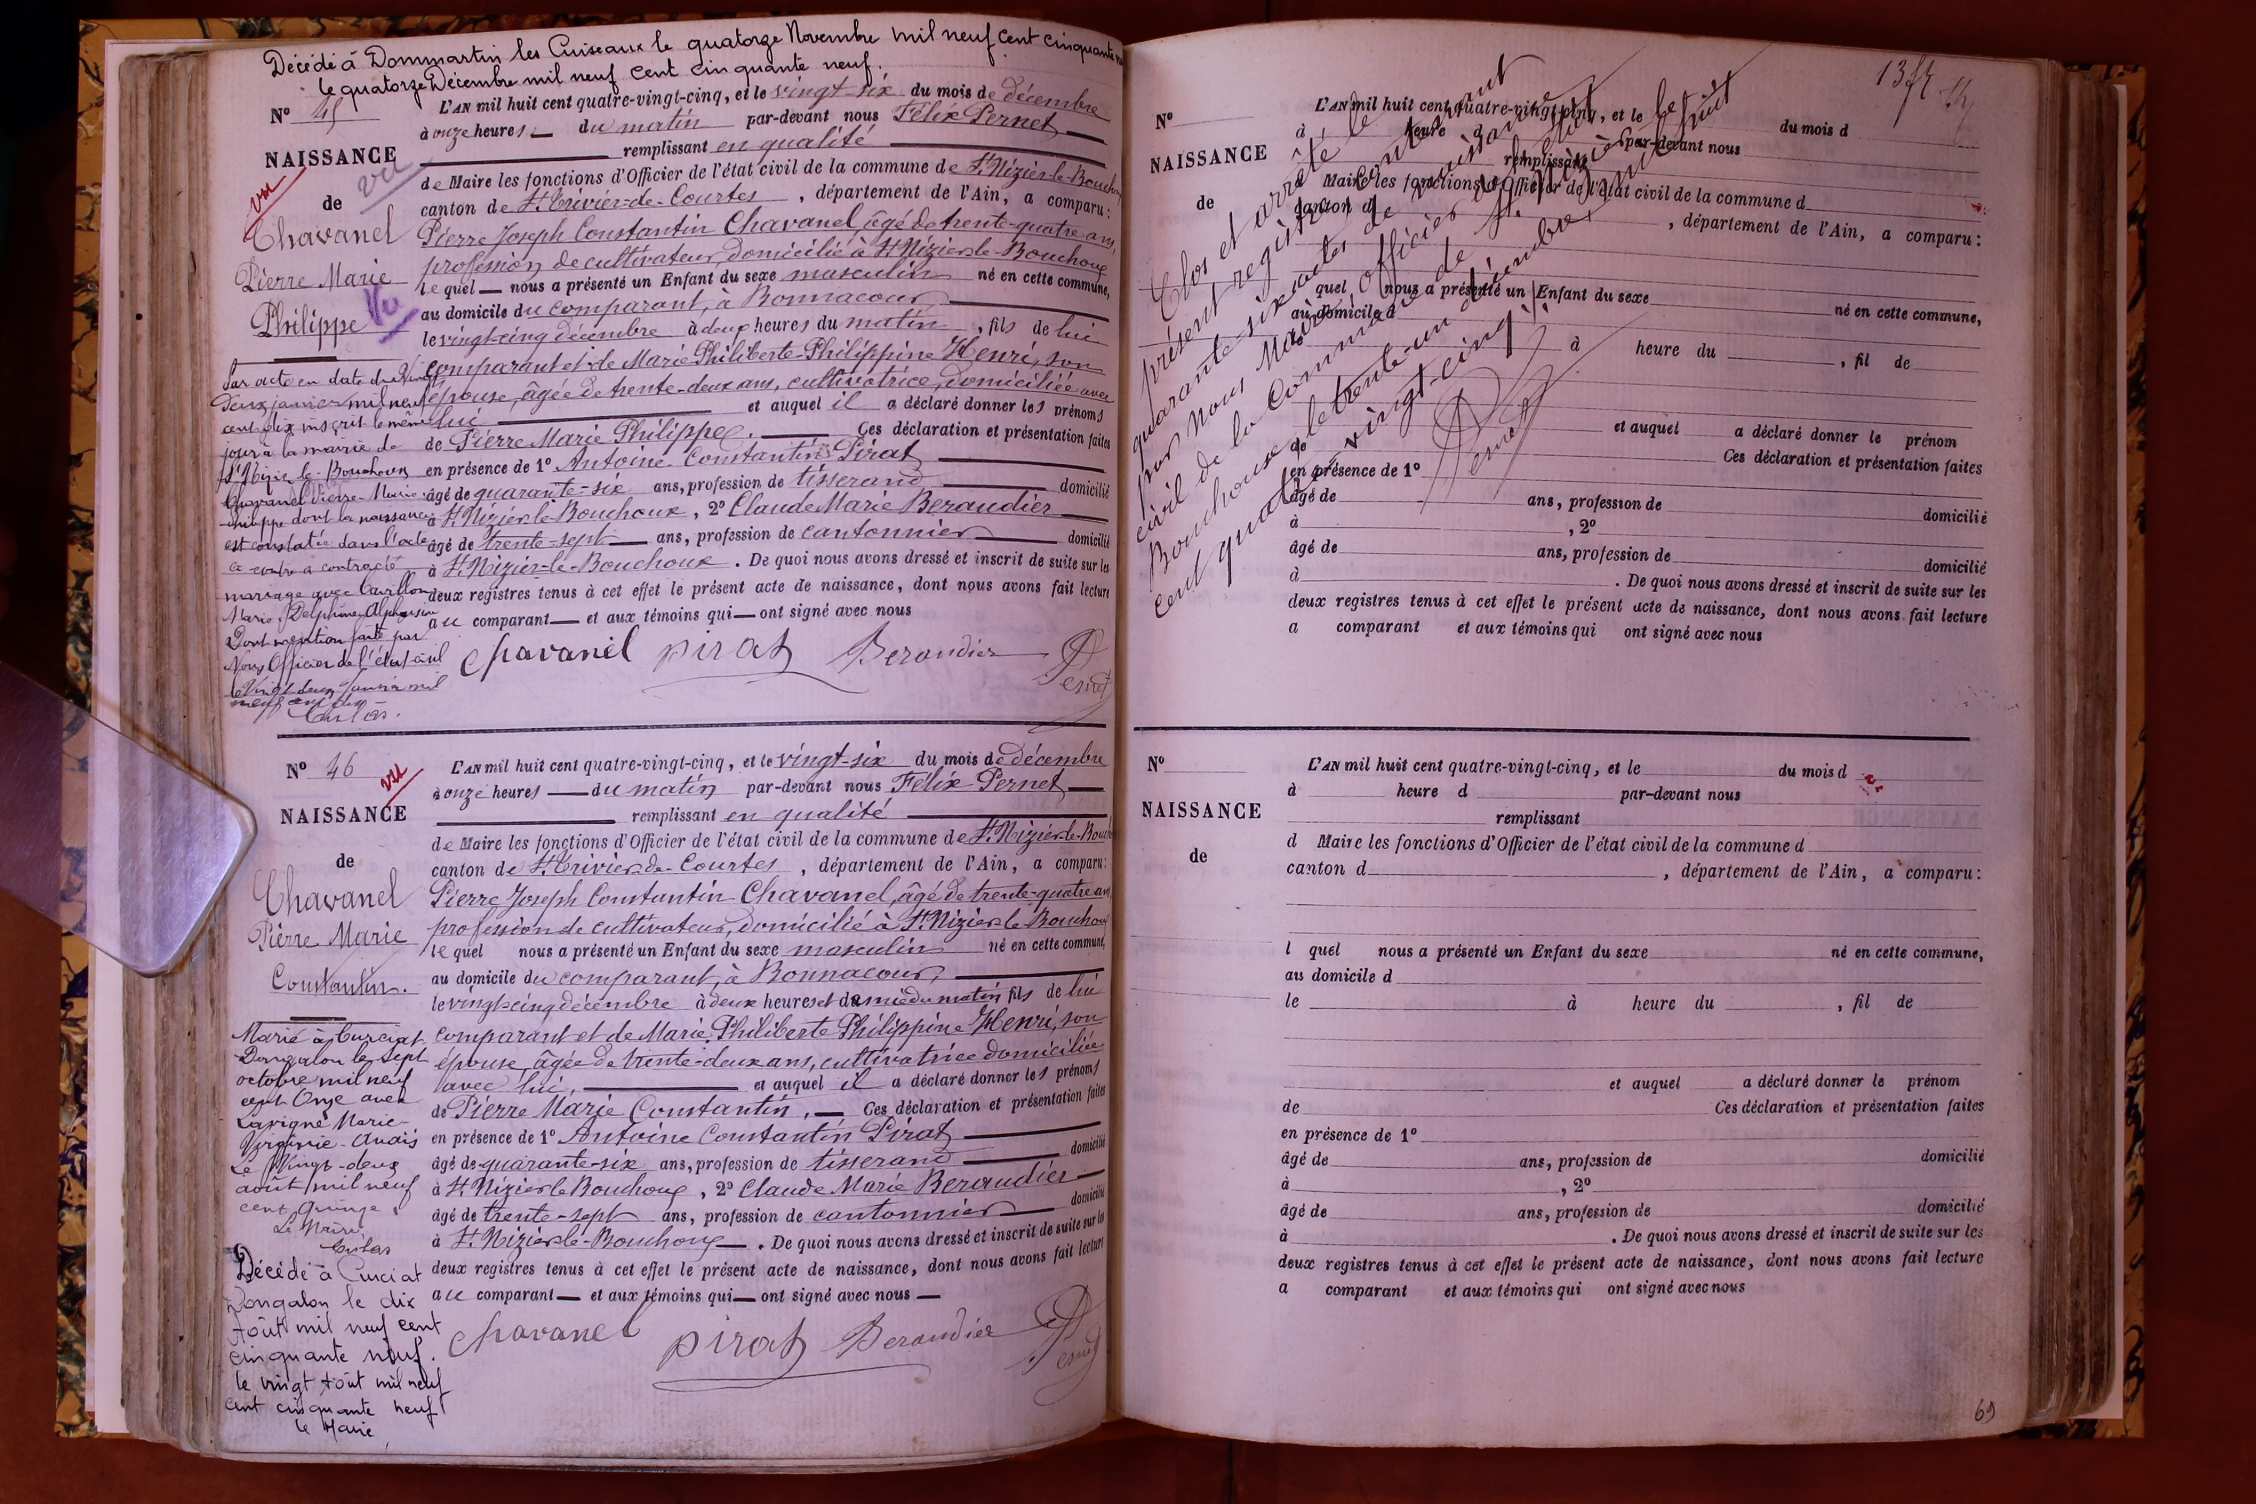 Décédé à Dommartin les Cuiseaux le quatorze Novembre mil neuf cent cinquante
le quatorze Décembre mil neuf cent cinquante neuf.
N° 45
NAISSANCE
vu
vu
de
Chavanel
Pierre Marie
Philippe
Vu
Par acte en date du vingt
deux janvier mil neuf
cent dix inscrit le même
jour à la mairie de
St Nizier-le-Bouchoux
Chavanel Pierre-Marie-
Philippe dont la naissance
est constatée dans l'acte
ci-contre a contracté
mariage avec
Marie Delphine Alphonsine
Dont mention faite par
Nous Officier de l'état civil
le vingt deux janvier mil
neuf cent dix
L'AN mil huit cent quatre-vingt-cinq, et le vingt-six du mois de décembre
à onze heures du matin par-devant nous Félix Pernet
remplissant en qualité
de Maire les fonctions d'Officier de l'état civil de la commune de St Nizier-le-Bouchoux
canton de St Trivier-de-Courtes, département de l'Ain, a comparu:
Pierre Joseph Constantin Chavanel, âgé de trente-quatre ans,
profession de cultivateur, domicilié à St Nizier-le-Bouchoux
lequel nous a présenté un Enfant du sexe masculin né en cette commune,
au domicile du comparant, à Bonnacour
le vingt-cinq décembre à deux heures du matin, fils de lui
comparant et de Marie Philiberte Philippine Henri, son
épouse, âgée de trente-deux ans, cultivatrice, domiciliée avec
lui et auquel il a déclaré donner les prénoms
de Pierre Marie Philippe. Ces déclaration et présentation faites
en présence de 1° Antoine Constantin Pirat
âgé de quarante-six ans, profession de tisserand domicilié
à St Nizier-le-Bouchoux, 2° Claude Marie Beraudier
âgé de trente-sept ans, profession de cantonnier domicilié
à St Nizier-le-Bouchoux. De quoi nous avons dressé et inscrit de suite sur les
deux registres tenus à cet effet le présent acte de naissance, dont nous avons fait lecture
au comparant et aux témoins qui ont signé avec nous
Chavanel Pirat Beraudier Pernet
N° 46
vu
NAISSANCE
de
Chavanel
Pierre Marie
Constantin.
Marié à Curciat
Dongalon le sept
octobre mil neuf
cent onze avec
Lavigne Marie-
Virginie-Anaïs
Le vingt-deux
août mil neuf
cent quinze
Le Maire,
Décédé à Curciat
Dongalon le dix
Août mil neuf cent
cinquante neuf.
le vingt Août mil neuf
cent cinquante neuf
le Maire,
L'AN mil huit cent quatre-vingt-cinq, et le vingt-six du mois de décembre
à onze heures du matin par-devant nous Félix Pernet
remplissant en qualité
de Maire les fonctions d'Officier de l'état civil de la commune de St Nizier-le-Bouchoux
canton de St Trivier-de-Courtes, département de l'Ain, a comparu:
Pierre Joseph Constantin Chavanel, âgé de trente-quatre ans,
profession de cultivateur, domicilié à St Nizier-le-Bouchoux
lequel nous a présenté un Enfant du sexe masculin né en cette commune,
au domicile du comparant, à Bonnacour,
le vingt-cinq décembre à deux heures et demie du matin fils de lui
comparant et de Marie Philiberte Philippine Henri, son
épouse, âgée de trente-deux ans, cultivatrice domiciliée
avec lui, et auquel il a déclaré donner les prénoms
de Pierre Marie Constantin. Ces déclaration et présentation faites
en présence de 1° Antoine Constantin Pirat
âgé de quarante-six ans, profession de tisserand domicilié
à St Nizier-le-Bouchoux, 2° Claude Marie Beraudier
âgé de trente-sept ans, profession de cantonnier domicilié
à St Nizier-le-Bouchoux. De quoi nous avons dressé et inscrit de suite sur les
deux registres tenus à cet effet le présent acte de naissance, dont nous avons fait lecture
au comparant et aux témoins qui ont signé avec nous
Chavanel Pirat Beraudier Pernet
N°
NAISSANCE
de
L'AN mil huit cent quatre-vingt-cinq, et le du mois d
à heure d par-devant nous
remplissant
Maire les fonctions d'Officier de l'état civil de la commune d
canton d , département de l'Ain, a comparu:
quel nous a présenté un Enfant du sexe né en cette commune,
au domicile d
à heure du , fil de
et auquel a déclaré donner le prénom
de Ces déclaration et présentation faites
en présence de 1°
âgé de ans, profession de domicilié
à , 2°
âgé de ans, profession de domicilié
à . De quoi nous avons dressé et inscrit de suite sur les
deux registres tenus à cet effet le présent acte de naissance, dont nous avons fait lecture
a comparant et aux témoins qui ont signé avec nous
Clos et arrêté le
présent registre contenant
quarante-six actes de naissance
par Nous Maire Officier de l'état
civil de la Commune de St Nizier le
Bouchoux, le trente-un décembre mil huit
cent quatre vingt-cinq.
Pernet
N°
NAISSANCE
de
L'AN mil huit cent quatre-vingt-cinq, et le du mois d
à heure d par-devant nous
remplissant
d Maire les fonctions d'Officier de l'état civil de la commune d
canton d , département de l'Ain, a comparu:
l quel nous a présenté un Enfant du sexe né en cette commune,
au domicile d
le à heure du , fil de
et auquel a déclaré donner le prénom
de Ces déclaration et présentation faites
en présence de 1°
âgé de ans, profession de domicilié
à , 2°
âgé de ans, profession de domicilié
à . De quoi nous avons dressé et inscrit de suite sur les
deux registres tenus à cet effet le présent acte de naissance, dont nous avons fait lecture
a comparant et aux témoins qui ont signé avec nous
69